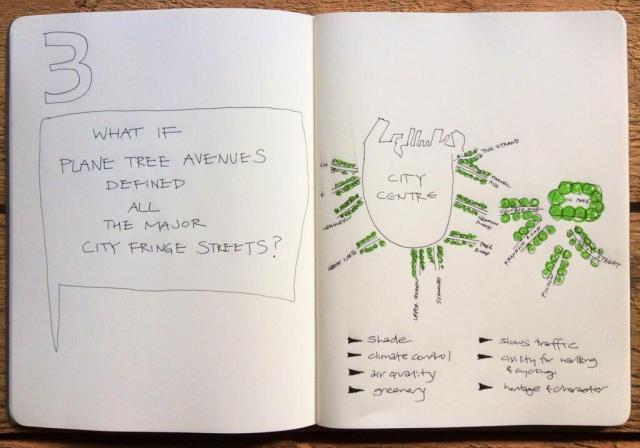 3
WHAT IF
PLANE TREE AVENUES
DEFINED
ALL
THE MAJOR
CITY FRINGE STREETS?
CITY
CENTRE
THE STRAND
VIC PARK
PARK
ROAD
GREAT NORTH
UPPER QUEEN
SYMONDS
STREET
shade
climate control
air quality
greenery
slows traffic
civility for walking
& cycling
heritage & character